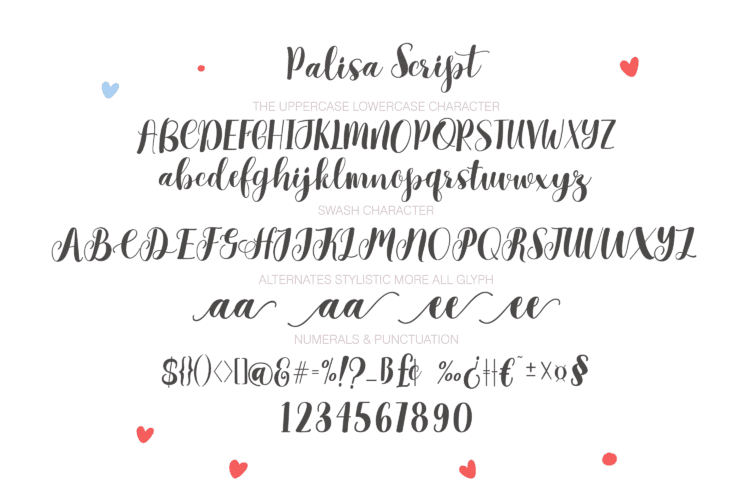 Palisa Script
THE UPPERCASE LOWERCASE CHARACTER
ABCDEFGHIJKLMNOPQRSTUVWXYZ
abcdefghijklmnopqrstuvwxyz
SWASH CHARACTER
ABCDEFGHIJKLMNOPQRSTUVWXYZ
ALTERNATES STYLISTIC MORE ALL GLYPH
aa aa ee ee
NUMERALS & PUNCTUATION
${}()<>[]@&#=%!?_B£¢ ‰¿ǂ€˜±×¤§
1234567890